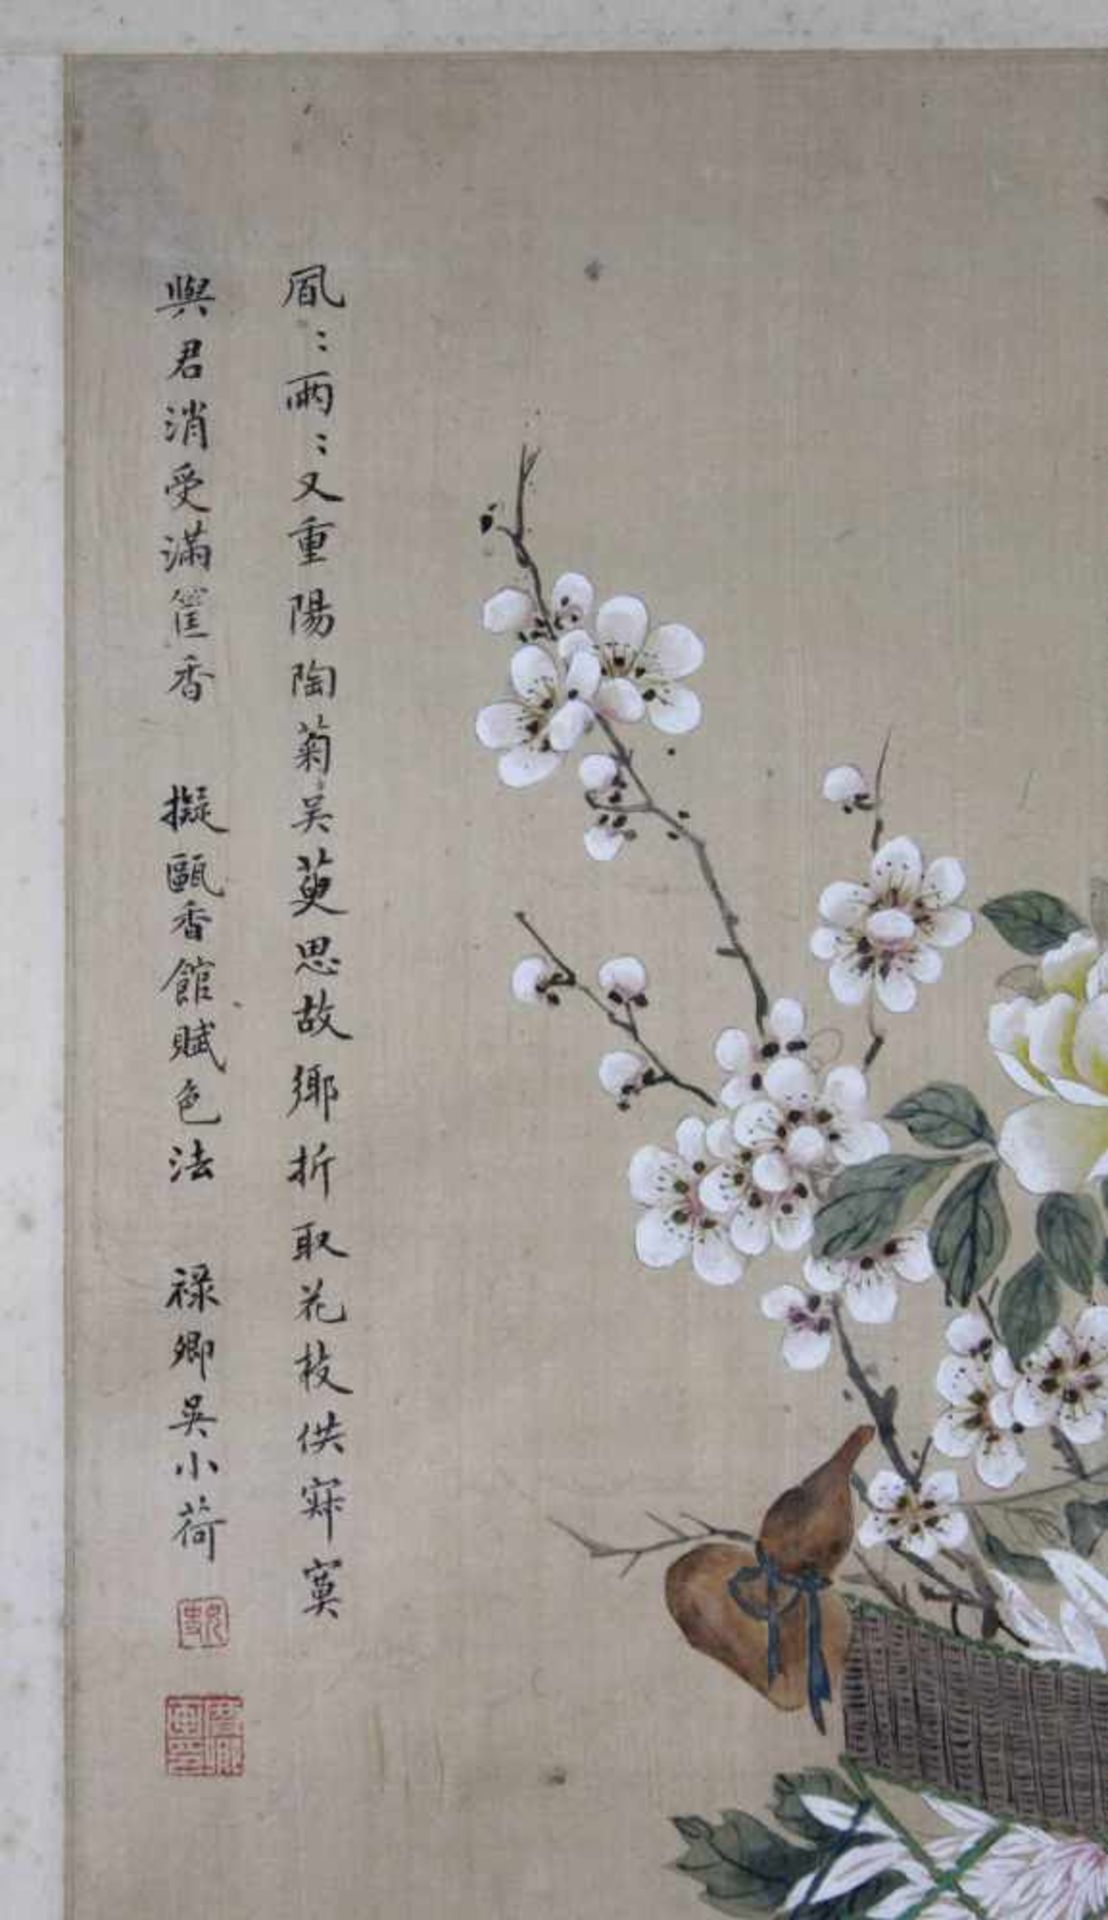 風〻雨〻又重陽陶菊吴萸思故鄉折取花枝供寂寞
與君消受滿筐香 擬甌香館賦色法 祿卿吳小荷